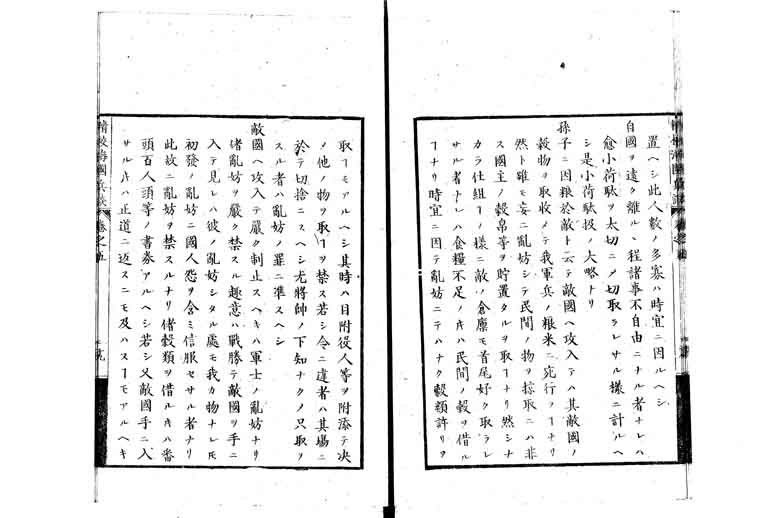 置ヘシ此人數ノ多寡ハ時宜ニ因ルヘシ
自國ヲ遠ク離ルヽ程諸事不自由ニナル者ナレハ
愈小荷駄ヲ太切ニメ切取ラレサル様ニ計ルヘ
シ是小荷駄扱ノ大略トリ
孫子ニ因粮於敵ト云テ敵國ヘ攻入テハ其敵國ノ
穀物ヲ取收メテ我軍兵ノ粮米ニ宛行フヿナリ
然ト雖モ妄ニ亂妨シテ民間ノ物ヲ掠取ニハ非
ス國主ノ穀帛等ヲ貯置タルヲ取ヿナリ然シナ
カラ仕組ヿノ様ニ敵ノ倉廩モ首尾好ク取ラレ
サル者ナレハ食糧不足ノ片ハ民間ノ穀ヲ借ル
ヿナリ時宜ニ因テ亂妨ニテハナク穀類許リヲ
取ヿモアルヘシ其時ハ目附役人等ヲ附添テ决
ノ他ノ物ヲ取ヿヲ禁ス若シ令ニ違者ハ其場ニ
於テ切捨ニスヘシ尤將帥ノ下知ナクノ只取ヲ
スル者ハ亂妨ノ罪ニ準スヘシ
敵國ヘ攻入テ嚴ク制止スヘキハ軍士ノ亂妨ナリ
偖亂妨ヲ嚴ク禁スル趣意ハ戰勝テ敵國ヲ手ニ
入テ見レハ彼ノ亂妨シタル處モ我カ物ナレ𪜈
初發ノ亂妨ニ國人怨ヲ含ミ信服セサル者ナリ
此故ニ亂妨ヲ禁スルナリ偖穀類ヲ借ル片ハ番
頭百人頭等ノ書券アルヘシ若シ又敵國手ニ入
サル片ハ正道ニ返スニモ及ハスヿモアルヘキ
精校海國兵談 卷之五